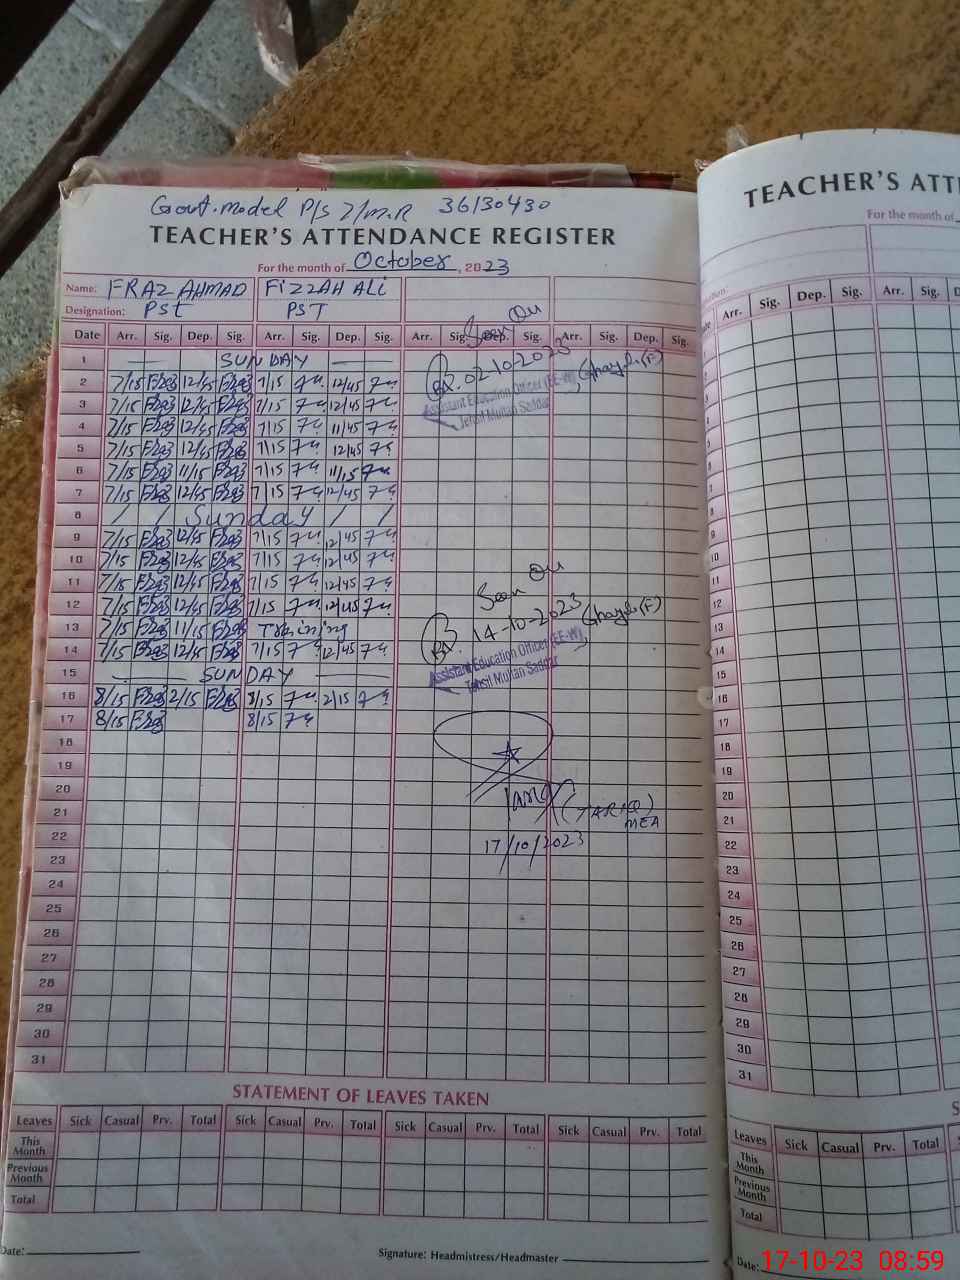 Govt. Model P/S 7/M.R 36130430
TEACHER'S ATTENDANCE REGISTER
For the month of October, 2023
Name: FRAZ AHMAD FIZZAH ALI
Designation: PST PST
Date Arr. Sig. Dep. Sig. Arr. Sig. Dep. Sig. Arr. Sig. Dep. Sig. Arr. Sig. Dep. Sig.
1 SUNDAY
2 7/15 Fraz 12/45 Fraz 7/15 12/45
3 7/15 Fraz 12/45 Fraz 7/15 12/45
4 7/15 Fraz 12/45 Fraz 7/15 11/45
5 7/15 Fraz 12/45 Fraz 7/15 12/45
6 7/15 Fraz 11/15 Fraz 7/15 11/15
7 7/15 Fraz 12/45 Fraz 7/15 12/45
8 / / Sunday / /
9 7/15 Fraz 12/45 Fraz 7/15 12/45
10 7/15 Fraz 12/45 Fraz 7/15 12/45
11 7/15 Fraz 12/45 Fraz 7/15 12/45
12 7/15 Fraz 12/45 Fraz 7/15 12/45
13 7/15 Fraz 11/15 Fraz Training
14 7/15 Fraz 12/45 Fraz 7/15 12/45
15 SUNDAY
16 8/15 Fraz 2/15 Fraz 8/15 2/15
17 8/15 Fraz 8/15
18
19
20
21
22
23
24
25
26
27
28
29
30
31
Seen On
02-10-2023
Assistant Education Officer (EE-W)
Tehsil Multan Saddar
Seen On
14-10-2023
Assistant Education Officer (EE-W)
Tehsil Multan Saddar
(TARIQ)
MEA
17/10/2023
STATEMENT OF LEAVES TAKEN
Leaves Sick Casual Prv. Total Sick Casual Prv. Total Sick Casual Prv. Total Sick Casual Prv. Total
This Month
Previous Month
Total
Date:
Signature: Headmistress/Headmaster
TEACHER'S ATT
For the month of
Arr. Sig. Dep. Sig. Arr. Sig.
10
11
12
13
14
15
16
17
18
19
20
21
22
23
24
25
26
27
28
29
30
31
Leaves Sick Casual Prv. Total
This Month
Previous Month
Total
Date:
17-10-23 08:59